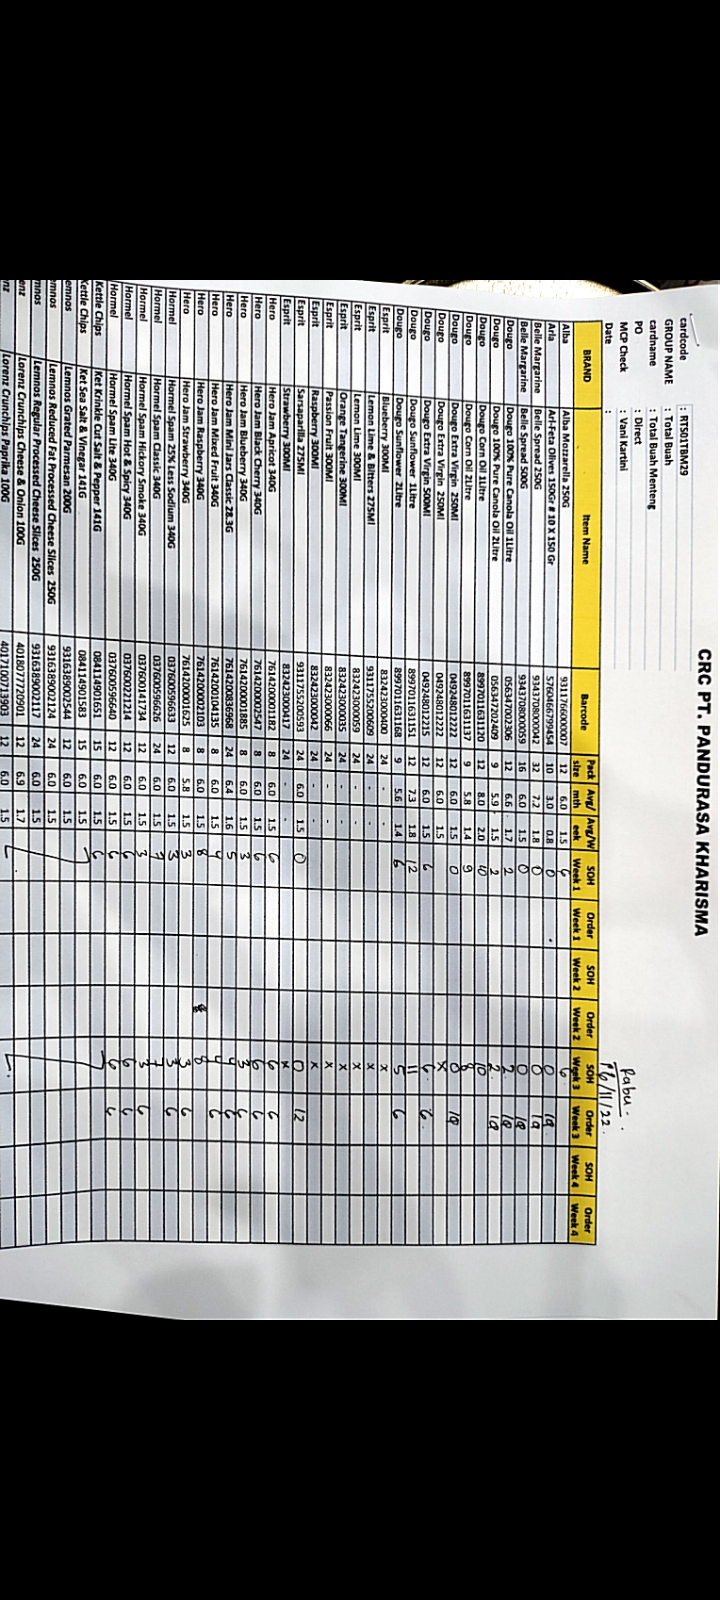 CRC PT. PANDURASA KHARISMA
cardcode : RTS01TBM29
GROUP NAME : Total Buah
cardname : Total Buah Menteng
PO : Direct
MCP Check : Vani Kartini
Date :
Rabu
16/11/22
BRAND Item Name Barcode Pack size Avg/mth Avg/Week SOH Week 1 Order Week 1 SOH Week 2 Order Week 2 SOH Week 3 Order Week 3 SOH Week 4 Order Week 4
Alba Alba Mozzarella 250G 9311766000007 12 6.0 1.5 6 6
Arla Arl-Feta Olives 150Gr # 10 X 150 Gr 5760466799454 10 3.0 0.8 0 0
Belle Margarine Belle Spread 250G 9343708000042 32 7.2 1.8 0 0
Belle Margarine Belle Spread 500G 9343708000059 16 6.0 1.5 0 0
Dougo Dougo 100% Pure Canola Oil 1Litre 056347002306 12 6.6 1.7 2 2
Dougo Dougo 100% Pure Canola Oil 2Litre 056347202409 9 5.9 1.5 2 2
Dougo Dougo Corn Oil 1Litre 8997011631120 12 8.0 2.0 10 10
Dougo Dougo Corn Oil 2Litre 8997011631137 9 5.8 1.4 9 8
Dougo Dougo Extra Virgin 250Ml 049248012222 12 6.0 1.5 0 0
Dougo Dougo Extra Virgin 250Ml 049248012222 12 6.0 1.5 x
Dougo Dougo Extra Virgin 500Ml 049248012215 12 6.0 1.5 6 6 6
Dougo Dougo Sunflower 1Litre 8997011631151 12 7.3 1.8 12 11
Dougo Dougo Sunflower 2Litre 8997011631168 9 5.6 1.4 6 5 6
Esprit Blueberry 300Ml 832423000400 24 - - x
Esprit Lemon Lime & Bitters 275Ml 9311755200609 24 - - x
Esprit Lemon Lime 300Ml 832423000059 24 - - x
Esprit Orange Tangerine 300Ml 832423000035 24 - - x
Esprit Passion Fruit 300Ml 832423000066 24 - - x
Esprit Raspberry 300Ml 832423000042 24 - - x
Esprit Sarsaparilla 275Ml 9311755200593 24 6.0 1.5 0 0 12
Esprit Strawberry 300Ml 832423000417 24 - - x
Hero Hero Jam Apricot 340G 7614200001182 8 6.0 1.5 6 6 6
Hero Hero Jam Black Cherry 340G 7614200002547 8 6.0 1.5 6 6 6
Hero Hero Jam Blueberry 340G 7614200001885 8 6.0 1.5 3 3 6
Hero Hero Jam Mini Jars Classic 28.3G 7614200836968 24 6.4 1.6 5 4 6
Hero Hero Jam Mixed Fruit 340G 7614200104135 8 6.0 1.5 4 4 6
Hero Hero Jam Raspberry 340G 7614200002103 8 6.0 1.5 8 8
Hero Hero Jam Strawberry 340G 7614200001625 8 5.8 1.5 3 3 6
Hormel Hormel Spam 25% Less Sodium 340G 037600596633 12 6.0 1.5 3 3 6
Hormel Hormel Spam Classic 340G 037600596626 24 6.0 1.5 7 7
Hormel Hormel Spam Hickory Smoke 340G 037600141734 12 6.0 1.5 3 3 6
Hormel Hormel Spam Hot & Spicy 340G 037600221214 12 6.0 1.5 6 6 6
Hormel Hormel Spam Lite 340G 037600596640 12 6.0 1.5 6 6 6
Kettle Chips Ket Krinkle Cut Salt & Pepper 141G 084114901651 15 6.0 1.5 6
Kettle Chips Ket Sea Salt & Vinegar 141G 084114901583 15 6.0 1.5
emnos Lemnos Grated Parmesan 200G 9316389002544 12 6.0 1.5
emnos Lemnos Reduced Fat Processed Cheese Slices 250G 9316389002124 24 6.0 1.5
mnos Lemnos Regular Processed Cheese Slices 250G 9316389002117 24 6.0 1.5
enz Lorenz Crunchips Cheese & Onion 100G 4018077720901 12 6.9 1.7
nz Lorenz Crunchips Paprika 100G 4017100713903 12 6.0 1.5